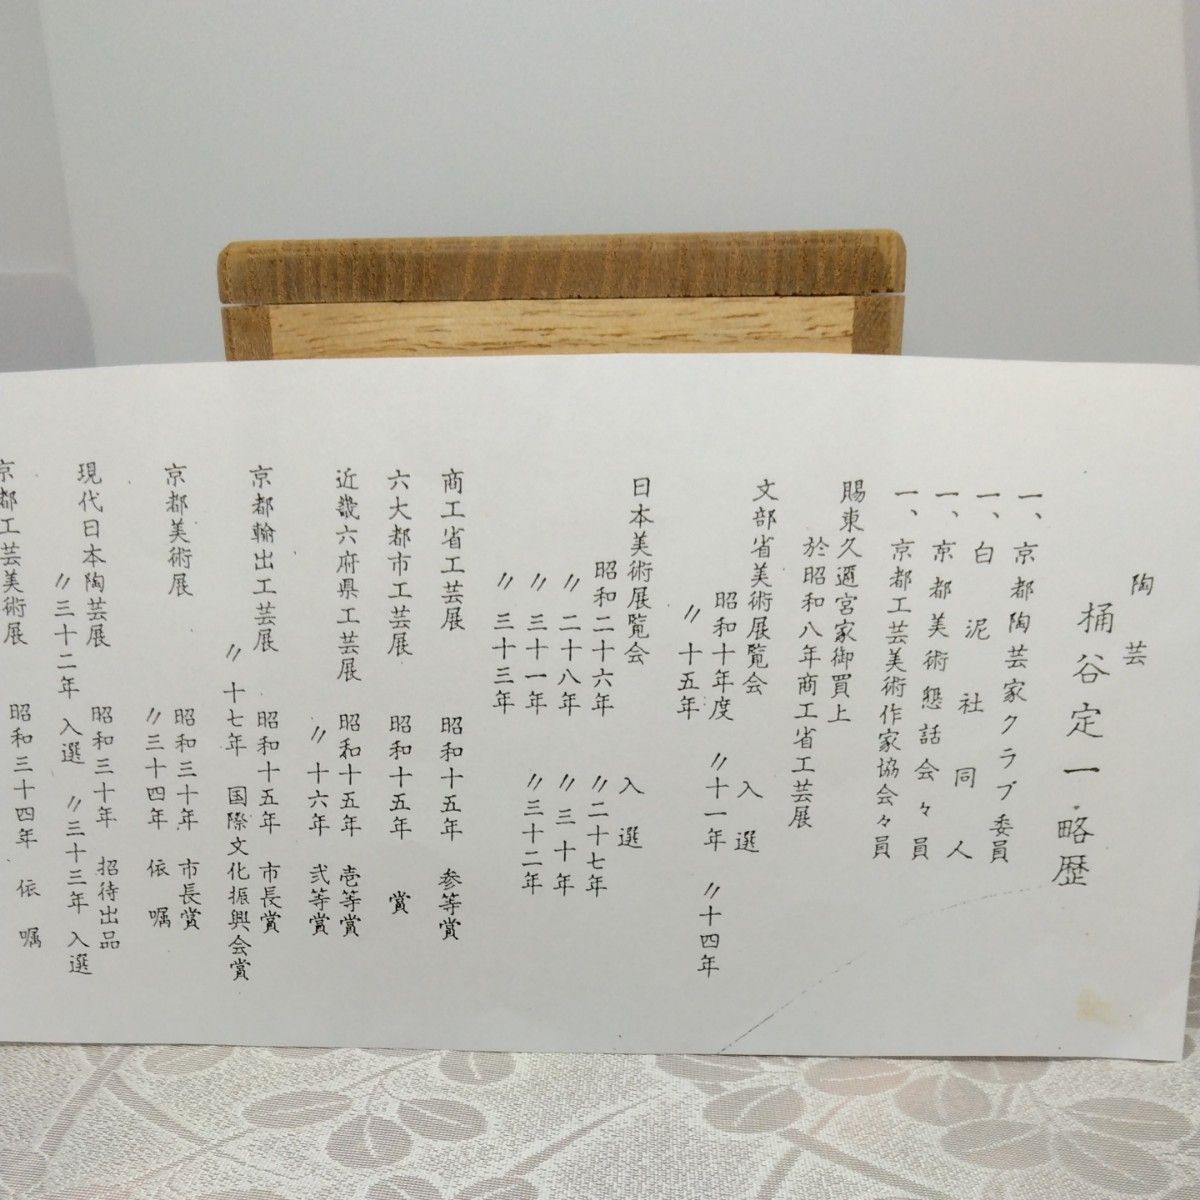 陶芸
桶谷定一略歴
一、京都陶芸家クラブ委員
一、白泥社同人
一、京都美術懇話会々員
一、京都工芸美術作家協会々員
賜東久邇宮家御買上
於昭和八年商工省工芸展
文部省美術展覧会 入選
昭和十年度 〃十一年 〃十四年
〃十五年
日本美術展覧会 入選
昭和二十六年 〃二十七年
〃二十八年 〃三十年
〃三十一年 〃三十二年
〃三十三年
商工省工芸展 昭和十五年 参等賞
六大都市工芸展 昭和十五年 賞
近畿六府県工芸展 昭和十五年 壱等賞
〃十六年 弐等賞
京都輸出工芸展 昭和十五年 市長賞
〃十七年 国際文化振興会賞
京都美術展 昭和三十年 市長賞
〃三十四年 依嘱
現代日本陶芸展 昭和三十年 招待出品
〃三十二年 入選 〃三十三年 入選
京都工芸美術展 昭和三十四年 依嘱